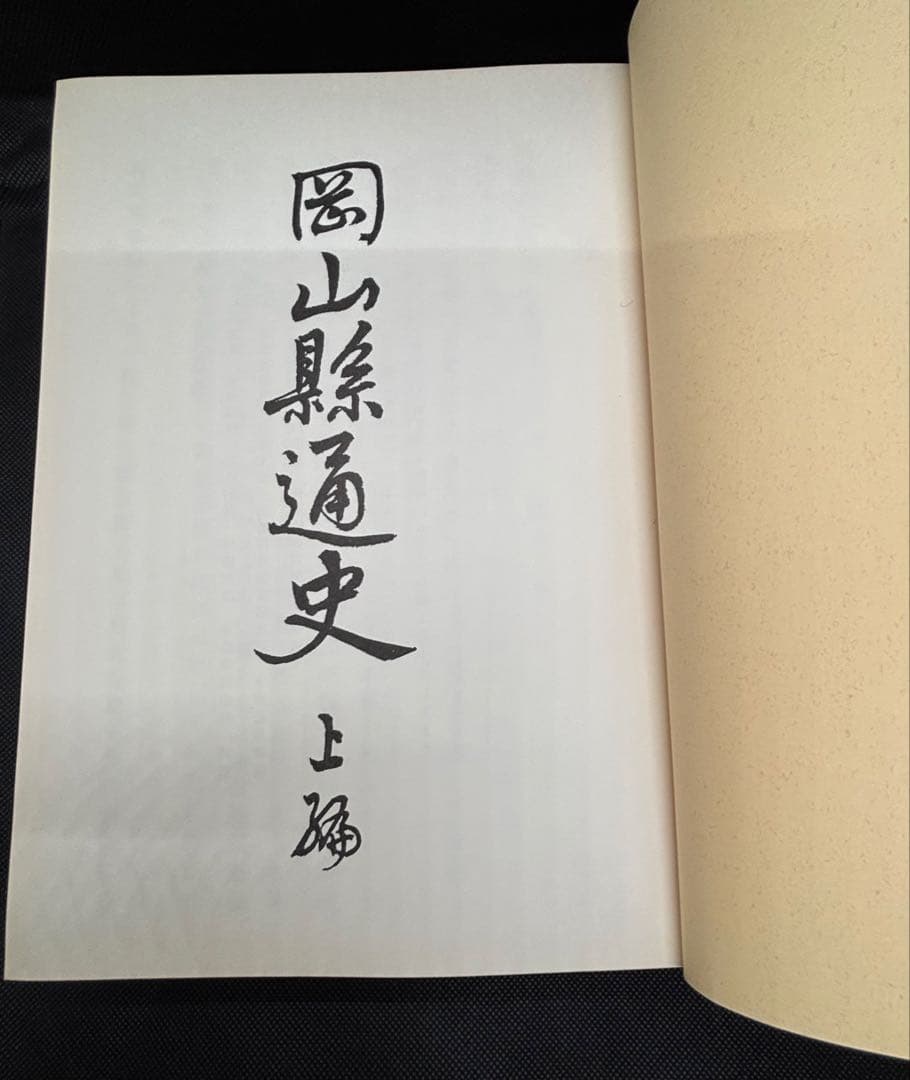 岡山縣通史
上編